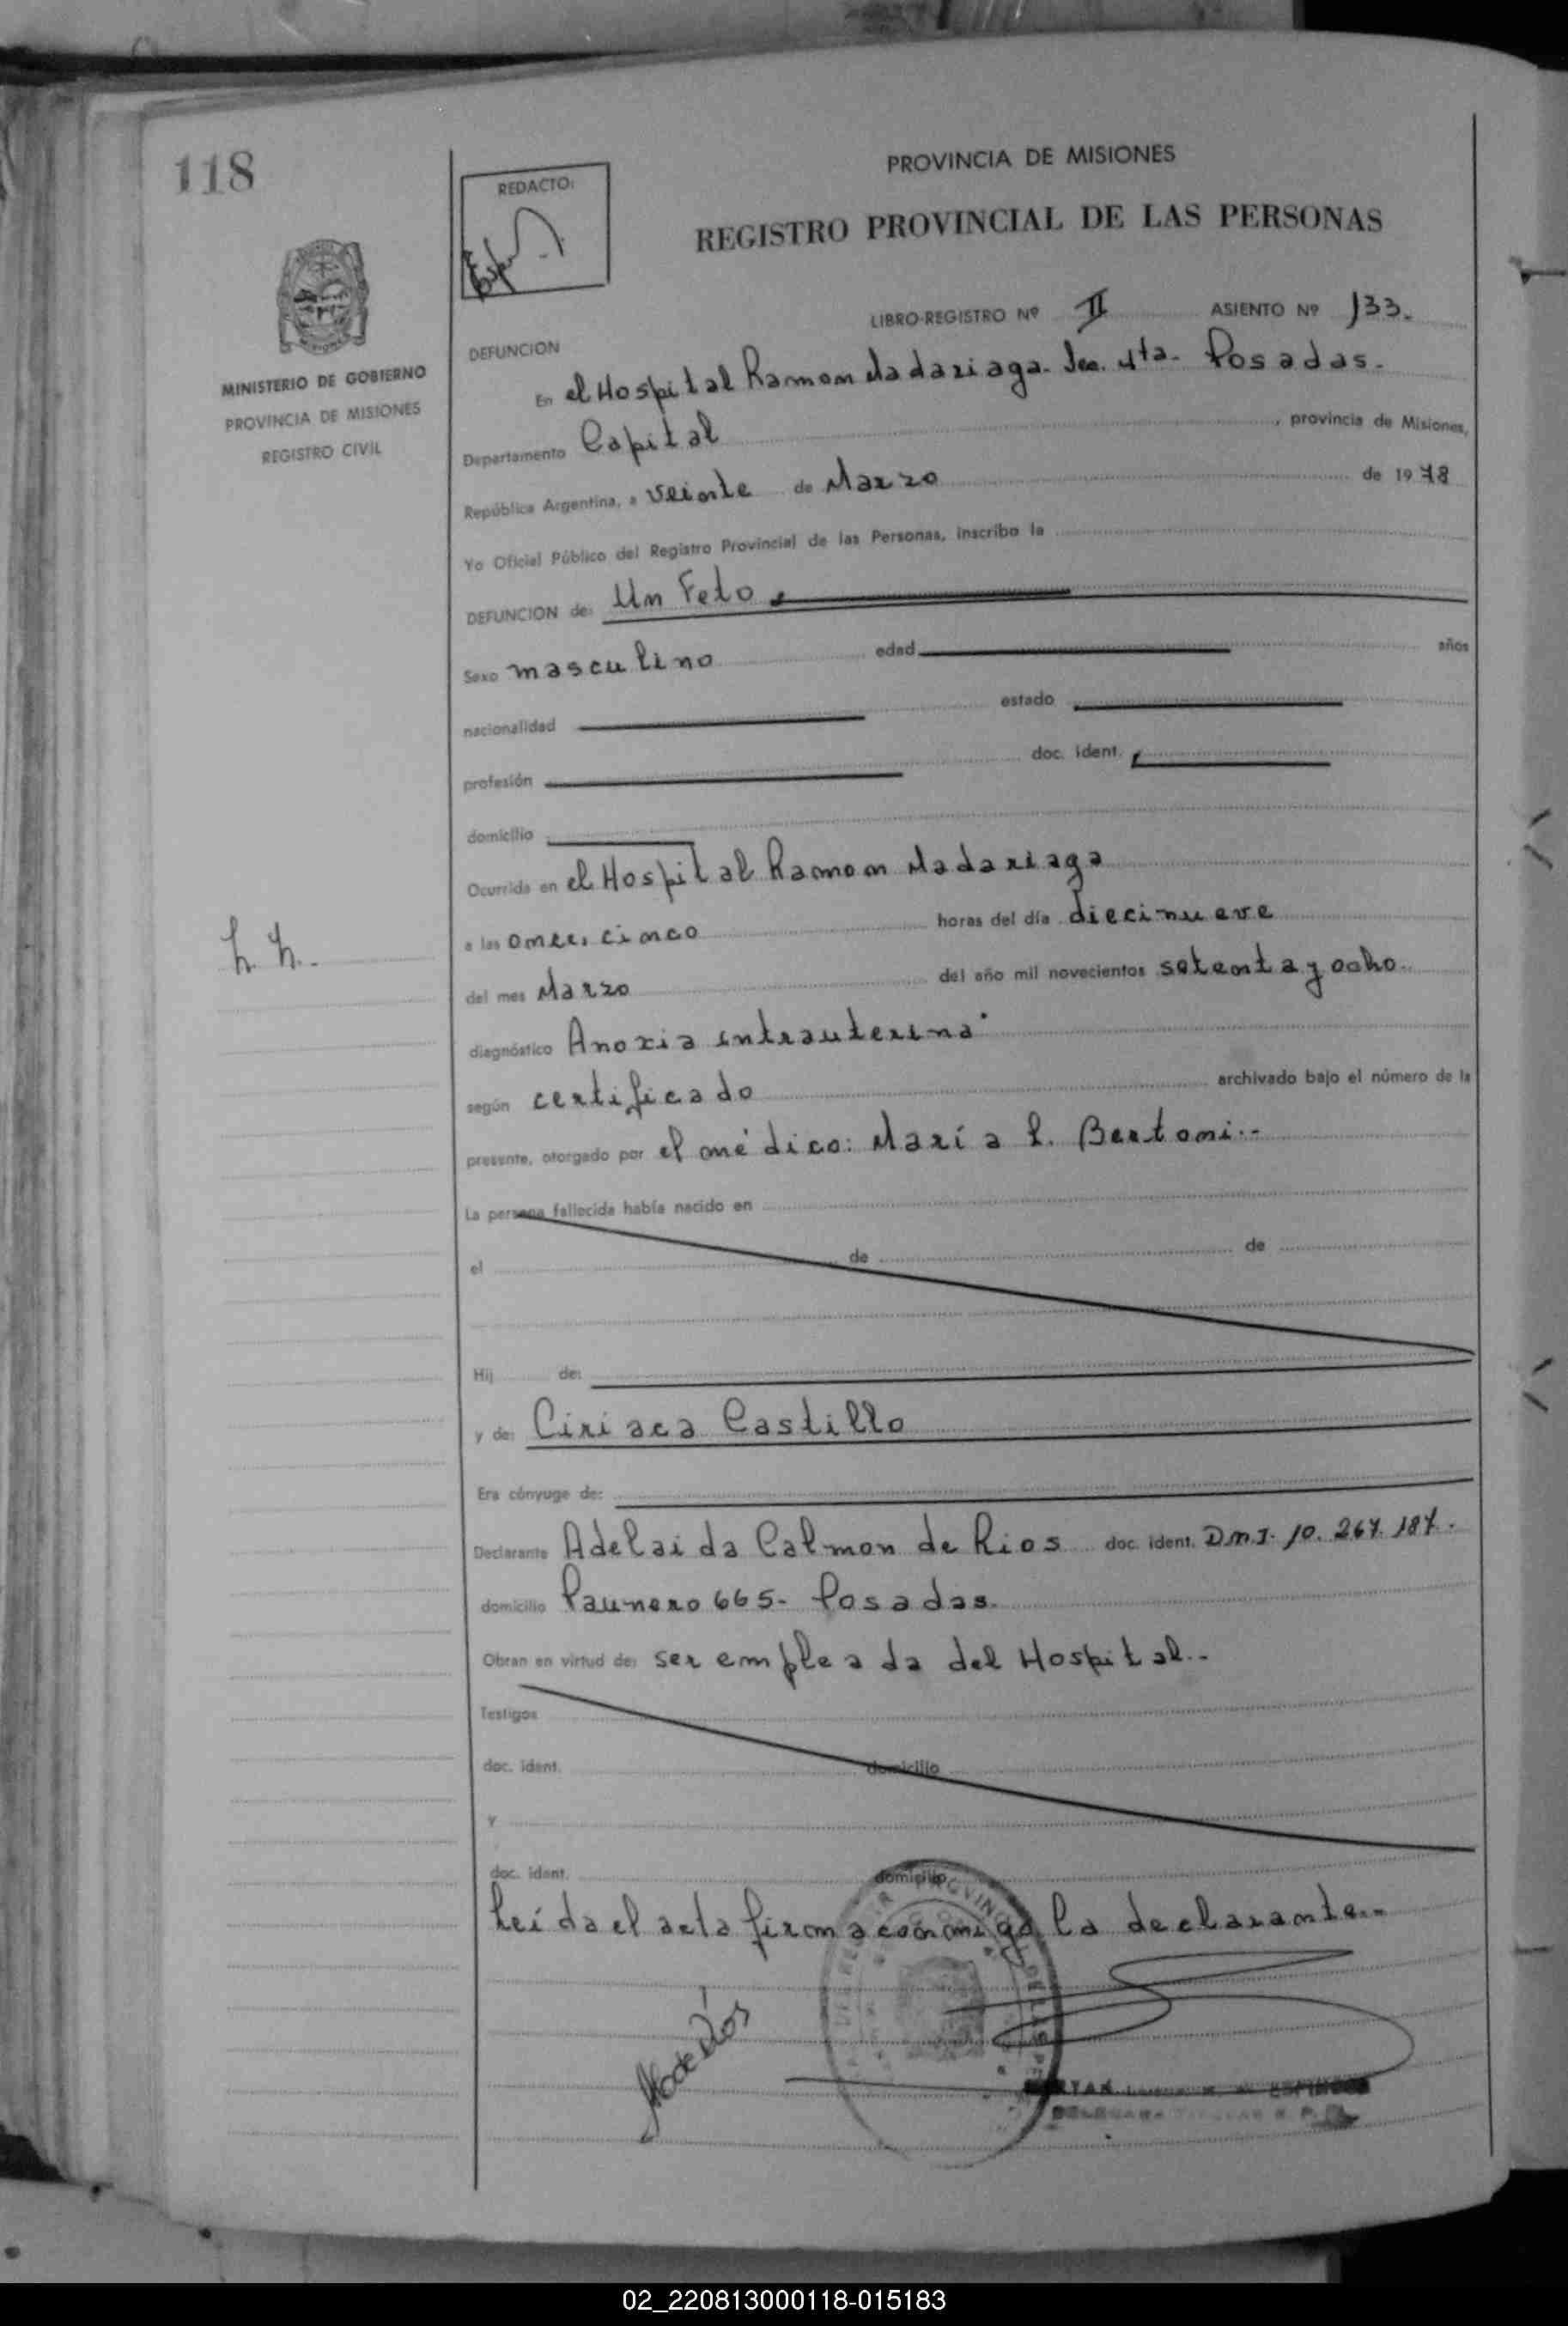 118
REDACTO:
PROVINCIA DE MISIONES
REGISTRO PROVINCIAL DE LAS PERSONAS
MINISTERIO DE GOBIERNO
PROVINCIA DE MISIONES
REGISTRO CIVIL
LIBRO-REGISTRO Nº II ASIENTO Nº 133.
DEFUNCION
En el Hospital Ramon Madariaga. Sec. 4ta. Posadas.
Departamento Capital , provincia de Misiones,
República Argentina, a veinte de Marzo de 1978
Yo Oficial Público del Registro Provincial de las Personas, inscribo la
DEFUNCION de: Un Feto
Sexo masculino edad años
nacionalidad estado
profesión doc. ident.
domicilio
Ocurrida en el Hospital Ramon Madariaga
h. h.
a las once, cinco horas del día diecinueve
del mes Marzo del año mil novecientos setenta y ocho.
diagnóstico Anoxia intrauterina
según certificado archivado bajo el número de la
presente, otorgado por el médico: María L. Bertoni.-
La persona fallecida había nacido en
el de de
Hij de:
y de: Ciriaca Castillo
Era cónyuge de:
Declarante Adelaida Calmon de Rios doc. ident. D.N.I. 10.267.187.
domicilio Paunero 665- Posadas.
Obran en virtud de: ser empleada del Hospital.-
Testigos
doc. ident. domicilio
y
doc. ident. domicilio
Leída el acta firma conmigo la declarante.-
02_220813000118-015183